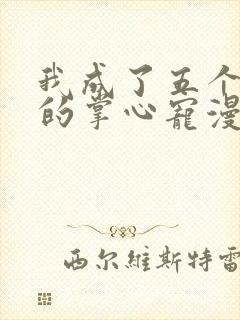 我成了五个
的掌心宠漫
西尔維斯特雷